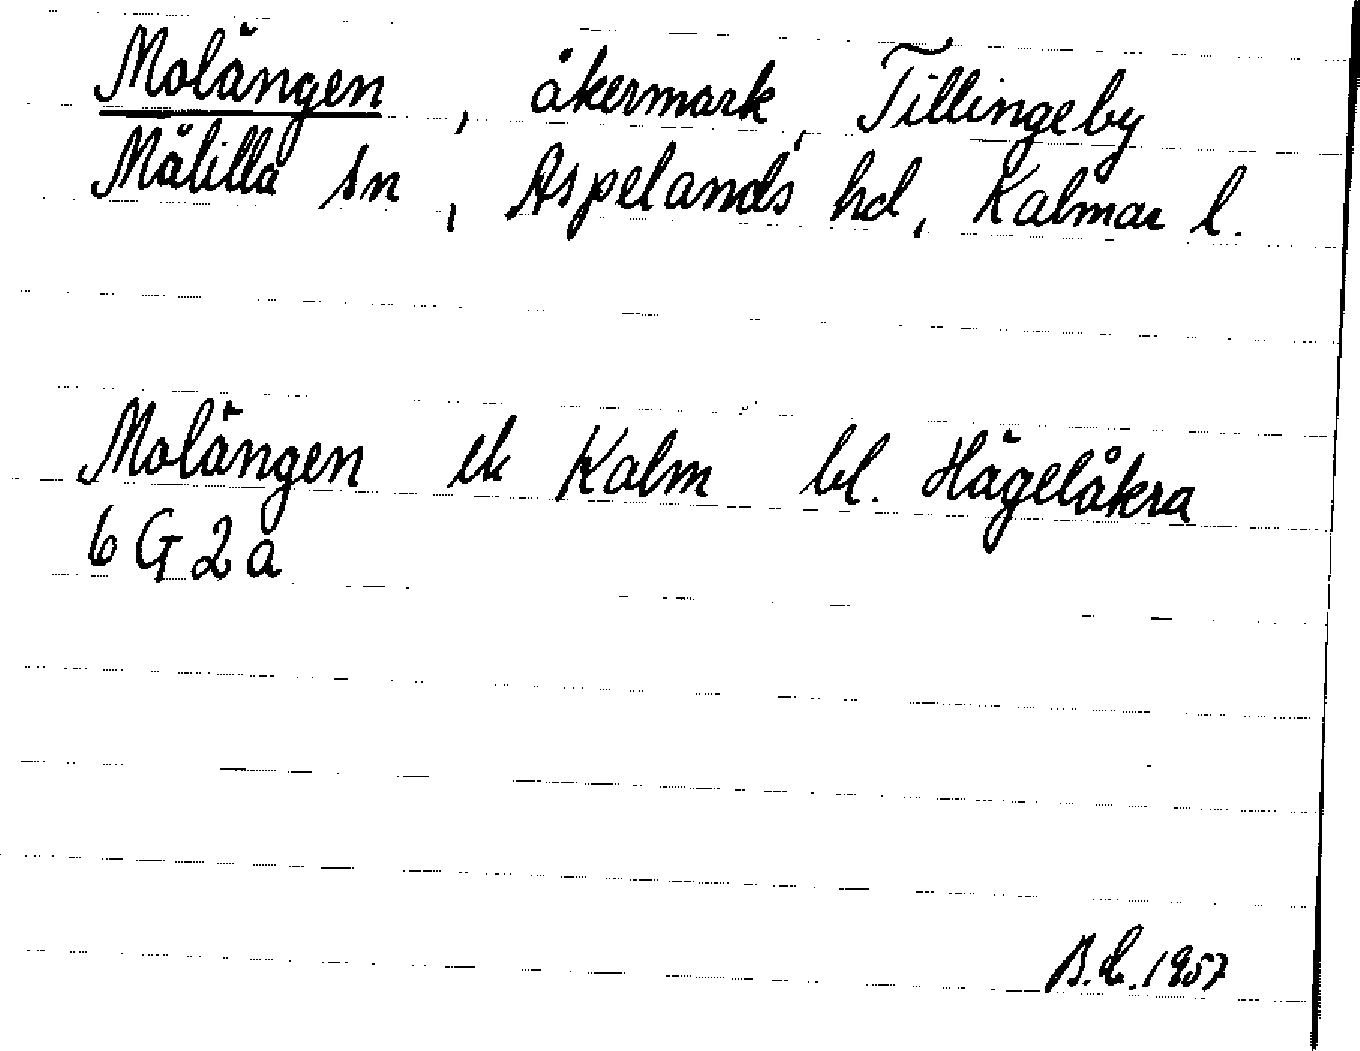 Molängen, åkermark, Tillingeby
Målilla sn, Aspelands hd, Kalmar l.
Molängen ek Kalm bl. Hägelåkra
6G2a
B.L. 1957